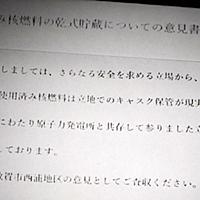 み核燃料の乾式貯蔵についての意見書
しましては、さらなる安全を求める立場から、
使用済み核燃料は立地でのキャスク保管が現実
にわたり原子力発電所と共存して参りましたさ
しております。
敦賀市西浦地区の意見としてご査収ください。